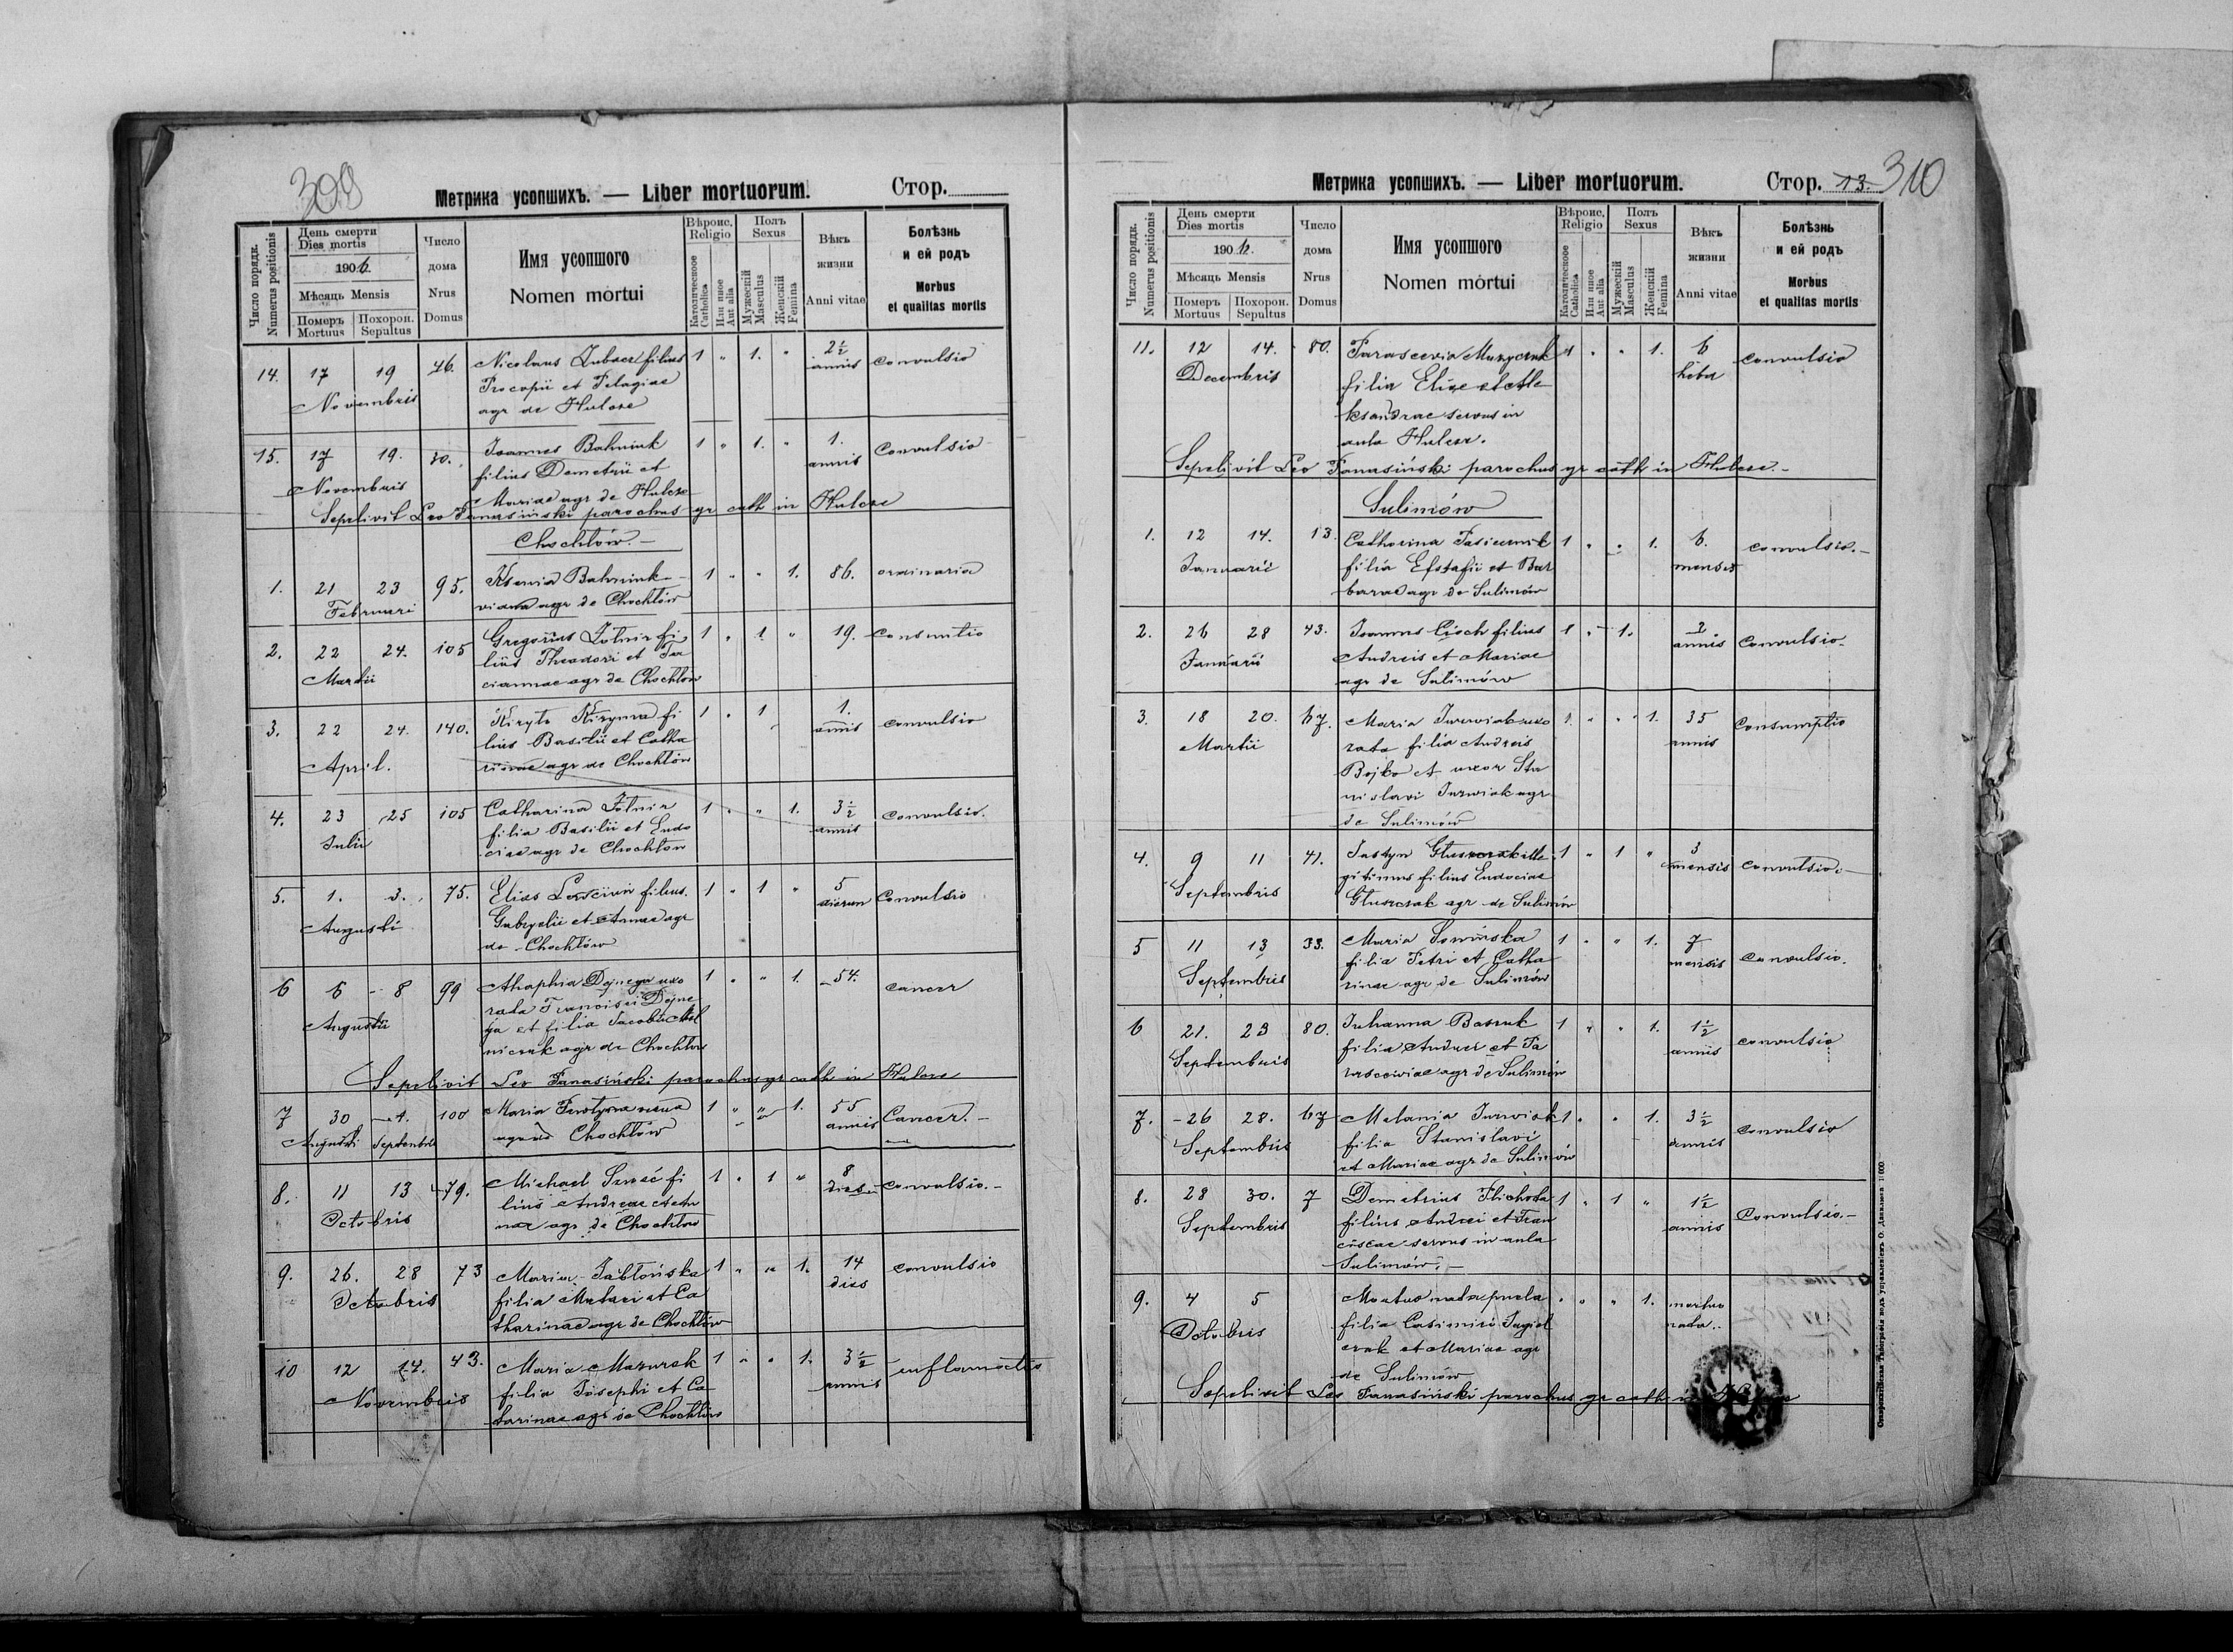 309
Метрика усопшихъ. — Liber mortuorum.
Стор.
Число порядк. Numerus positionis
День смерти Dies mortis
1906.
Мѣсяць Mensis
Померъ Mortuus
Похорон. Sepultus
Число дома Nrus Domus
Имя усопшого
Nomen mortui
Вѣроис. Religio
Католическое Catholica
Или иное Aut alia
Полъ Sexus
Мужескій Masculus
Женскій Femina
Вѣкъ жизни Anni vitae
Болѣзнь и ей родъ
Morbus et qualitas mortis
14. 17 19 46. Nicolaus filius 1 " 1. " 2½ convulsio
Novembris Procopii et Pelagiae annis
agr de Hulcze
15. 17 19. 30. Joannes Bahniuk 1 " 1. " 1. Convulsio
Novembris filius Demetrii et annis
Mariae agr de Hulcze
Sepelivit Leo Tanasiński parochus gr cath in Hulcze
Chochłów. —
1. 21 23 95. Ksenia Bahniuk 1 " " 1. 86. ordinaria
Februari agr de Chochłów
2. 22 24. 105 Gregorius Żółnir fi 1 " 1 " 19. Consumtio
Martii lius Theodori et Ta
ciannae agr de Chochłów
3. 22 24. 140. Kiryło fi 1 " 1 1. convulsio
April. lius Basilii et Catha annis
rinae agr de Chochłów
4. 23 25 105 Catharina Żółnir 1 " " 1. 3½ convulsio.
Julii filia Basilii et Eudo annis
ciae agr de Chochłów
5. 1. 3. 75. Elias filius 1 " 1 " 5 Convulsio
Augusti Gabryelii et Annae agr dierum
de Chochłów
6 6 8 99 Ahaphia Dejnega uxo 1 " " 1. 54. cancer
Augusti rata Francisci Dejne
ga et filia Jacobi Mel
niczuk agr de Chochłów
Sepelivit Leo Tanasiński parochus gr cath in Hulcze
7 30 1. 100 Maria 1 " " 1. 55 Cancer. —
Augusti Septembris agr de Chochłów annis
8. 11 13 79. Michael fi 1 " 1 " 8 convulsio. —
Octobris lius Andreae et An dies
nae agr de Chochłów
9. 26. 28 73 Maria Jabłońska 1 " " 1. 14 convulsio
Octobris filia et Ca dies
tharinae agr de Chochłów
10 12 14. 43. Maria Mazurek 1 " " 1. 3½ inflamactio
Novembris filia Josephi et Ca annis
tarinae agr de Chochłów
310
Метрика усопшихъ. — Liber mortuorum.
Стор. 13.
Число порядк. Numerus positionis
День смерти Dies mortis
1906.
Мѣсяць Mensis
Померъ Mortuus
Похорон. Sepultus
Число дома Nrus Domus
Имя усопшого
Nomen mortui
Вѣроис. Religio
Католическое Catholica
Или иное Aut alia
Полъ Sexus
Мужескій Masculus
Женскій Femina
Вѣкъ жизни Anni vitae
Болѣзнь и ей родъ
Morbus et qualitas mortis
11. 12 14. 80. Parascevia Muzyczuk 1 " " 1. 6 convulsio
Decembris filia Eliae et Ale
ksandrae servus in
aula Hulcze.
Sepelivit Leo Tanasiński parochus gr cath in Hulcze. —
Sulimów
1. 12 14. 13. Catharina Pasicznik 1 " " 1. 6. convulsio. —
Januarii filia Efstafii et Bar mensis
barae agr de Sulimów
2. 26 28 43. Joannes Cioch filius 1 " 1. 2 Convulsio.
Januarii Andreis et Mariae annis
agr de Sulimów
3. 18 20. 67. Maria Jurwiak uxo 1. " " 1. 35 Consumptio
Martii rata filia Andreis annis
Bojko et uxor Sta
nislavi Jurwiak agr
de Sulimów
4. 9 11 41. Justyn Głuszczak ille 1 " 1 " 3 convulsio. —
Septembris gitimus filius Eudociae mensis
Głuszczak agr de Sulimów
5 11 13 33. Maria Sowińska 1 " " 1. 7 convulsio.
Septembris filia Petri et Catha mensis
rinae agr de Sulimów
6 21. 23 80. Juhanna 1 " " 1. 1½ convulsio
Septembris filia Andrei et Pa annis
rasceviae agr de Sulimów
7. 26 28. 67 Melania Jurwiak 1 " " 1. 3½ convulsio
Septembris filia Stanislavi annis
et Mariae agr de Sulimów
8. 28 30. 7 Demetrius 1 " 1 " 1½ Convulsio. —
Septembris filius Andrei et Fran annis
ciscae servus in aula
Sulimów. —
9. 4 5 Mortuo nata puela " " " 1. mortuo
Octobris filia Casimiri Jagiel nata.
czuk et Mariae agr
de Sulimów
Sepelivit Leo Tanasiński parochus gr cath in Hulcze